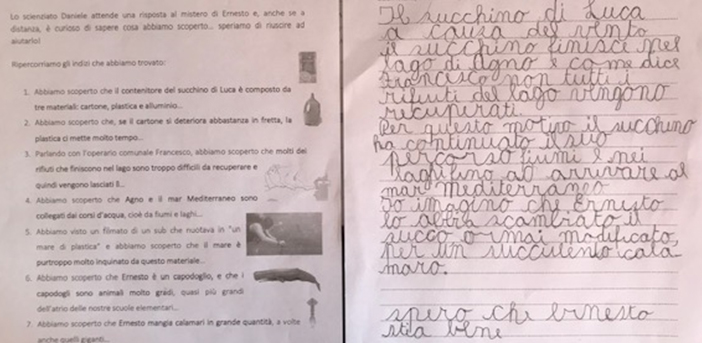 Lo scienziato Daniele attende una risposta al mistero di Ernesto e, anche se a
distanza, è curioso di sapere cosa abbiamo scoperto... speriamo di riuscire ad
aiutarlo!
Ripercorriamo gli indizi che abbiamo trovato:
1. Abbiamo scoperto che il contenitore del succhino di Luca è composto da
tre materiali: cartone, plastica e alluminio...
2. Abbiamo scoperto che, se il cartone si deteriora abbastanza in fretta, la
plastica ci mette molto tempo...
3. Parlando con l'operario comunale Francesco, abbiamo scoperto che molti dei
rifiuti che finiscono nel lago sono troppo difficili da recuperare e
quindi vengono lasciati lì...
4. Abbiamo scoperto che Agno e il mar Mediterraneo sono
collegati dai corsi d'acqua, cioè da fiumi e laghi...
5. Abbiamo visto un filmato di un sub che nuotava in "un
mare di plastica" e abbiamo scoperto che il mare è
purtroppo molto inquinato da questo materiale...
6. Abbiamo scoperto che Ernesto è un capodoglio, e che i
capodogli sono animali molto gradi, quasi più grandi
dell'atrio delle nostre scuole elementari...
7. Abbiamo scoperto che Ernesto mangia calamari in grande quantità, a volte
anche quelli giganti...
Il succhino di Luca
a causa del vento
il succhino finisce nel
lago di Agno e come dice
Francisco non tutti i
rifiuti del lago vengono
recuperati.
Per questo motivo il succhino
ha continuato il suo
percorso fiumi e nei
laghi fino ad arrivare al
mar mediterraneo
Io imagino che Ernesto
lo abbia scambiato il
succo o mai modificato,
per un succulento cala
maro.
spero che Ernesto
stia bene